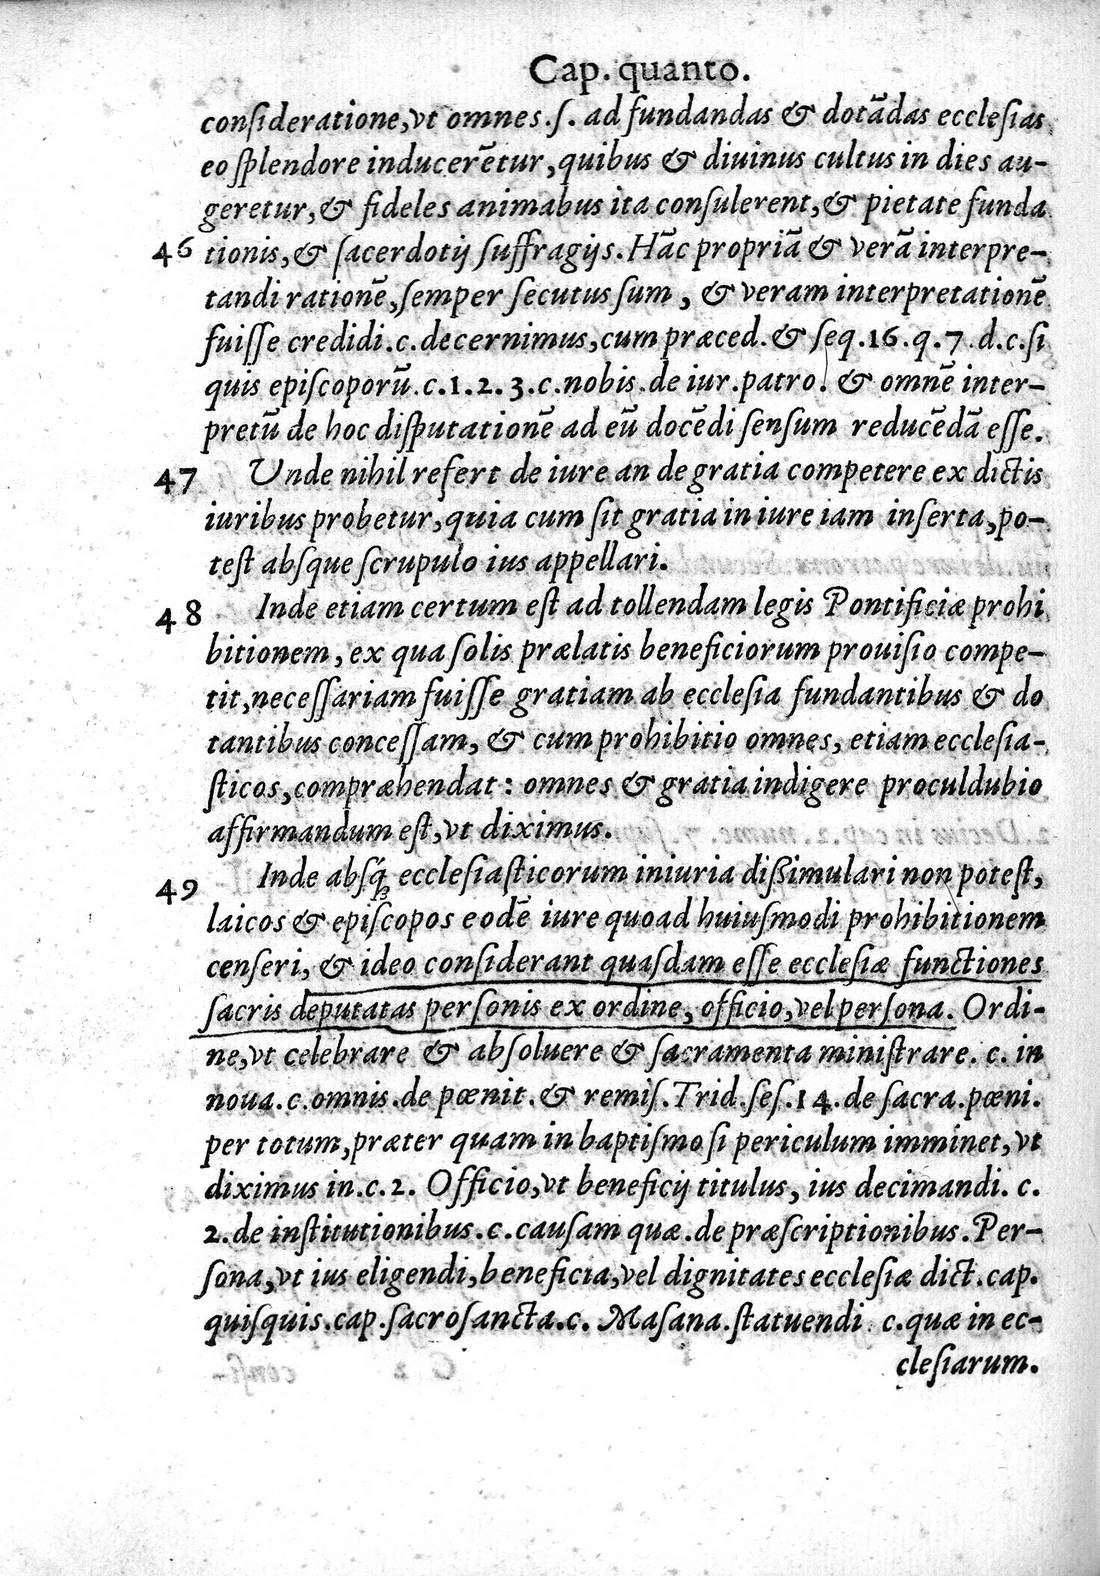 Cap. quanto.
conſideratione,vt omnes.ſ. ad fundandas & dotãdas eccleſias
eo ſplendore inducerẽtur,quibus & diuinus cultus in dies au-
geretur,& fideles animabus ita conſulerent,& pietate funda
46 tionis,& ſacerdotij ſuffragijs.Hãc propriã & verã interpre-
tandi rationẽ,ſemper ſecutus ſum, & veram interpretationẽ
fuiſſe credidi.c.decernimus,cum præced.& ſeq.16.q.7.d.c.ſi
quis epiſcoporũ.c.1.2.3.c.nobis.de iur.patro. & omnẽ inter-
pretũ de hoc diſputationẽ ad eũ docẽdi ſenſum reducẽdã eſſe.
47 Unde nihil refert de iure an de gratia competere ex dictis
iuribus probetur,quia cum ſit gratia in iure iam inſerta,po-
teſt abſque ſcrupulo ius appellari.
48 Inde etiam certum eſt ad tollendam legis Pontificiæ prohi
bitionem, ex qua ſolis prælatis beneficiorum prouiſio compe-
tit,neceſſariam fuiſſe gratiam ab eccleſia fundantibus & do
tantibus conceſſam, & cum prohibitio omnes, etiam eccleſia-
ſticos,compræhendat: omnes & gratia indigere proculdubio
affirmandum eſt,vt diximus.
49 Inde abſq́; eccleſiaſticorum iniuria diſſimulari non poteſt,
laicos & epiſcopos eodẽ iure quoad huiuſmodi prohibitionem
cenſeri, & ideo conſiderant quaſdam eſſe eccleſiæ functiones
ſacris deputatas perſonis ex ordine, officio,vel perſona. Ordi-
ne,vt celebrare & abſoluere & ſacramenta miniſtrare. c. in
noua.c.omnis.de pœnit.& remiſ.Trid.ſeſ.14.de ſacra.pœni.
per totum,præter quam in baptiſmo ſi periculum imminet,vt
diximus in.c.2. Officio,vt beneficij titulus, ius decimandi. c.
2.de inſtitutionibus.c.cauſam quæ.de præſcriptionibus.Per-
ſona,vt ius eligendi,beneficia,vel dignitates eccleſiæ dict.cap.
quiſquis.cap.ſacroſancta.c. Maſana.ſtatuendi. c.quæ in ec-
cleſiarum.